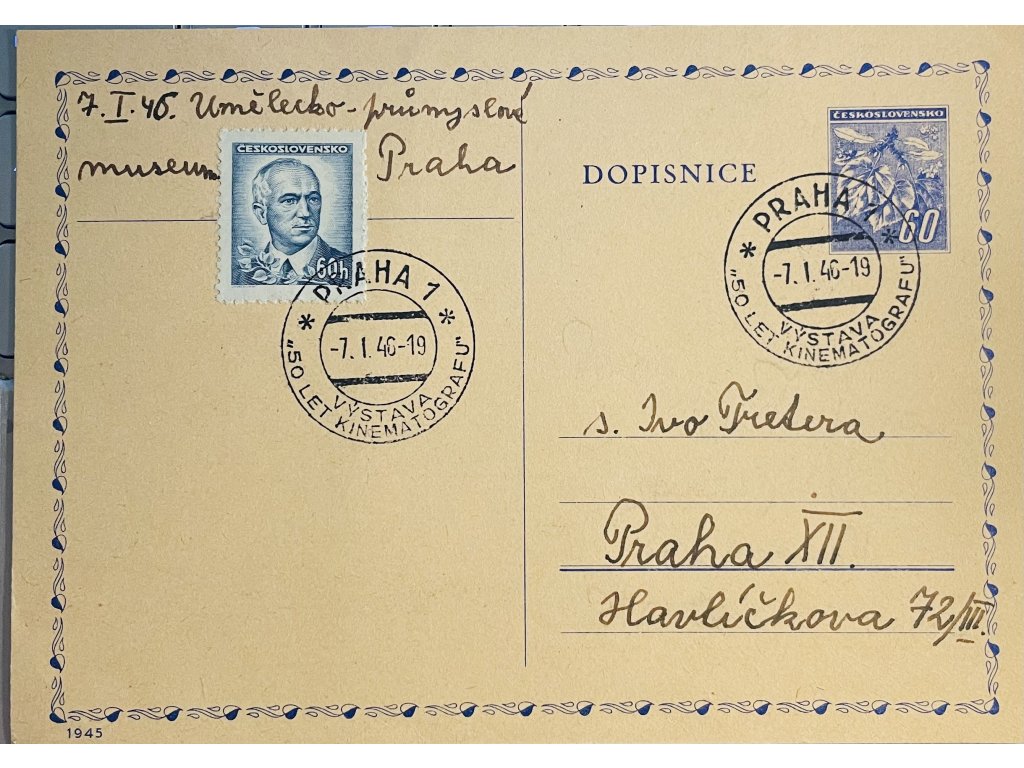 7. I. 46. Umělecko-průmyslové
museum Praha
ČESKOSLOVENSKO
60h
PRAHA 1
-7. I. 46-19
VÝSTAVA
„50 LET KINEMATOGRAFU"
DOPISNICE
ČESKOSLOVENSKO
60
PRAHA 1
-7. I. 46-19
VÝSTAVA
„50 LET KINEMATOGRAFU"
s. Ivo Tretera
Praha XII.
Havlíčkova 72/III.
1945